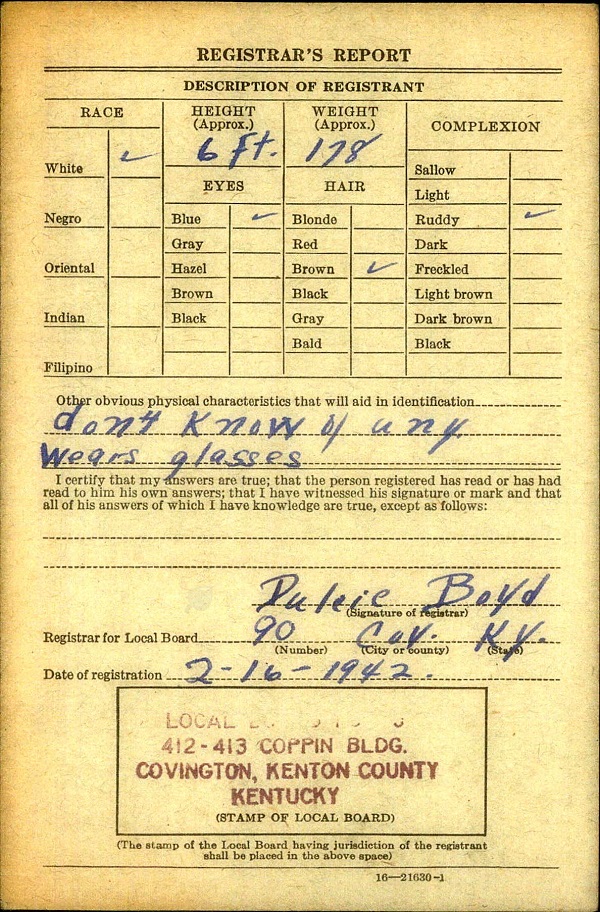 REGISTRAR'S REPORT
DESCRIPTION OF REGISTRANT
RACE
HEIGHT
(Approx.)
WEIGHT
(Approx.)
COMPLEXION
6 Ft.
178
White ✓
Sallow
EYES
HAIR
Light
Negro
Blue ✓
Blonde
Ruddy ✓
Gray
Red
Dark
Oriental
Hazel
Brown ✓
Freckled
Brown
Black
Light brown
Indian
Black
Gray
Dark brown
Bald
Black
Filipino
Other obvious physical characteristics that will aid in identification
don't know of any
Wears glasses
I certify that my answers are true; that the person registered has read or has had
read to him his own answers; that I have witnessed his signature or mark and that
all of his answers of which I have knowledge are true, except as follows:
Boyd
(Signature of registrar)
Registrar for Local Board 90 Cov. Ky.
(Number) (City or county) (State)
Date of registration 2-16-1942.
LOCAL
412-413 COPPIN BLDG.
COVINGTON, KENTON COUNTY
KENTUCKY
(STAMP OF LOCAL BOARD)
(The stamp of the Local Board having jurisdiction of the registrant
shall be placed in the above space)
16—21630-1